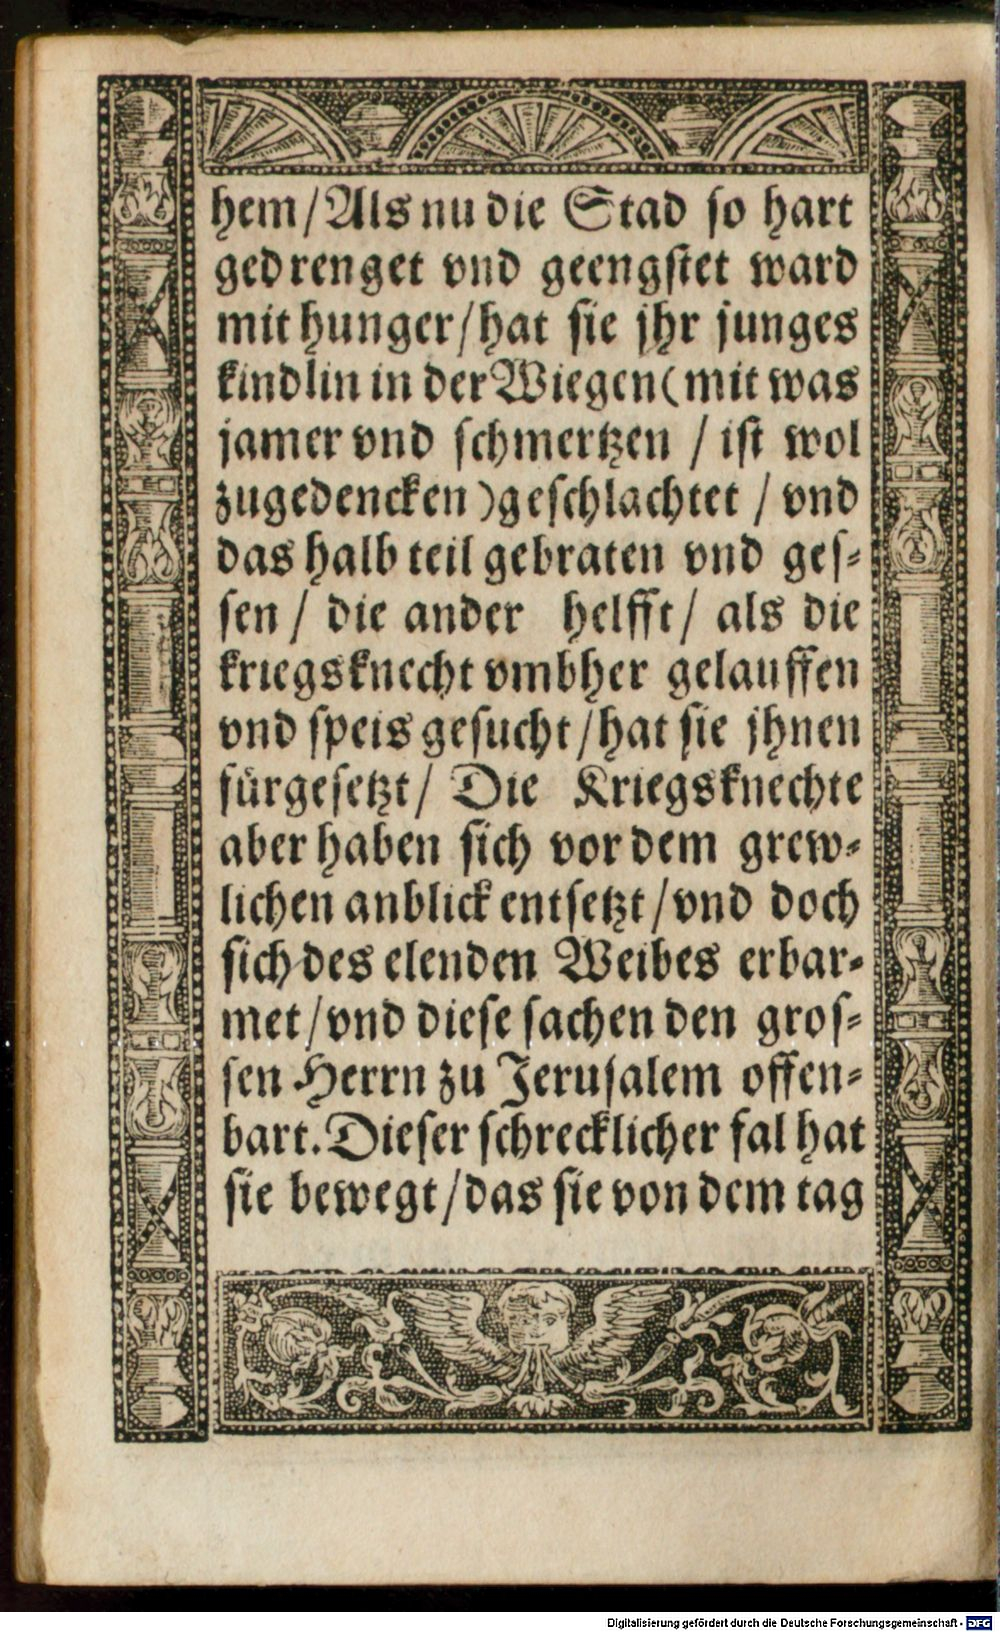 hem/Als nu die Stad so hart
gedrenget vnd geengstet ward
mit hunger/hat sie jhr junges
kindlin in der Wiegen(mit was
jamer vnd schmertzen / ist wol
zugedencken)geschlachtet / vnd
das halb teil gebraten vnd ges-
sen / die ander helfft/ als die
kriegsknecht vmbher gelauffen
vnd speis gesucht/hat sie jhnen
fürgesetzt/ Die Kriegsknechte
aber haben sich vor dem grew-
lichen anblick entsetzt/vnd doch
sich des elenden Weibes erbar-
met/vnd diese sachen den gros-
sen Herrn zu Jerusalem offen-
bart. Dieser schrecklicher fal hat
sie bewegt/das sie von dem tag
Digitalisierung gefördert durch die Deutsche Forschungsgemeinschaft - DFG